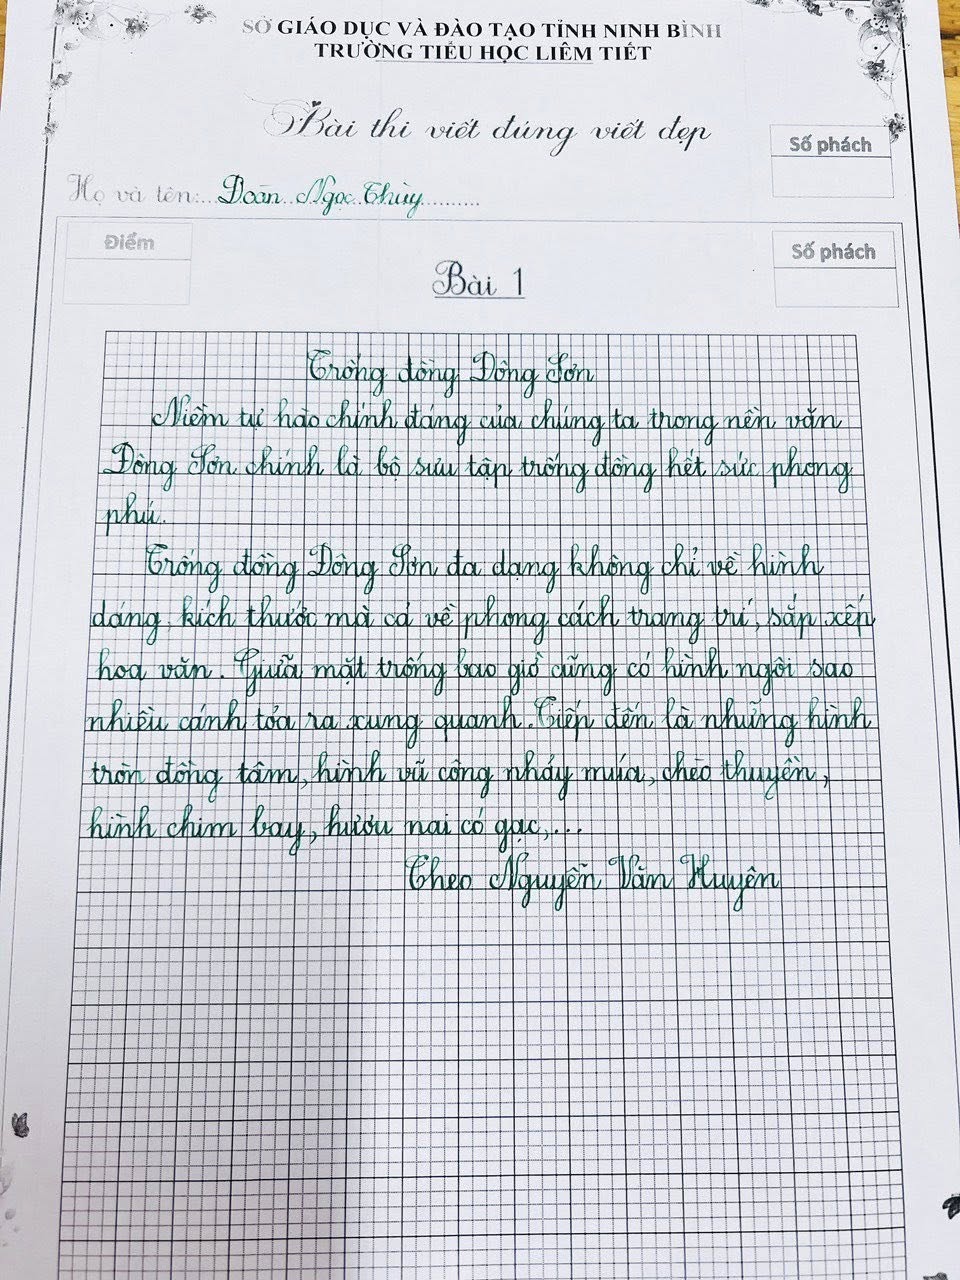 SỞ GIÁO DỤC VÀ ĐÀO TẠO TỈNH NINH BÌNH
TRƯỜNG TIỂU HỌC LIÊM TIẾT
Bài thi viết đúng viết đẹp
Số phách
Họ và tên:...Đoàn..Ngọc..Thùy..........
Điểm
Số phách
Bài 1
Trống đồng Đông Sơn
Niềm tự hào chính đáng của chúng ta trong nền văn
Đông Sơn chính là bộ sưu tập trống đồng hết sức phong
phú.
Trống đồng Đông Sơn đa dạng không chỉ về hình
dáng, kích thước mà cả về phong cách trang trí, sắp xếp
hoa văn. Giữa mặt trống bao giờ cũng có hình ngôi sao
nhiều cánh tỏa ra xung quanh. Tiếp đến là những hình
tròn đồng tâm, hình vũ công nhảy múa, chèo thuyền,
hình chim bay, hươu nai có gạc,...
Theo Nguyễn Văn Huyên